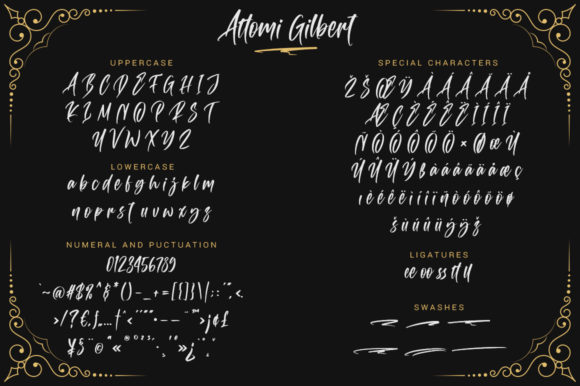 Attomi Gilbert
UPPERCASE
A B C D E F G H I J
K L M N O P R S T
U V W X Y Z
LOWERCASE
a b c d e f g h i j k l m
n o p r s t u v w x y z
NUMERAL AND PUCTUATION
0123456789
`~@#$%^&*()-_+=[{]}\|:;'",<.
>/?€‚ƒ„…†ˆ
¥§¨©ª«
SPECIAL CHARACTERS
Ž Š Œ Ÿ À Á Â Ã Ä Å
Æ Ç È É Ê Ë Ì Í Î Ï
Ñ Ò Ó Ô Õ Ö × Ø œ Ù
Ú Û Ü Ý ß à á â ã ä å æ ç
ı è é ê ë ì í î ï ñ ò ó ô õ ö ø
š ù ú û ü ý ÿ ž
LIGATURES
ee oo ss tt ll
SWASHES